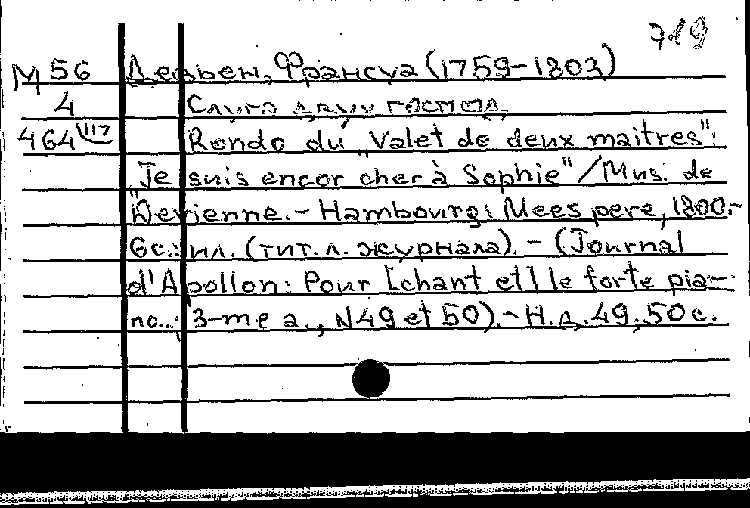 719
М 56 Девьен, Франсуа (1759-1803)
4 Слуга двух господ.
464 VII7 Rondo du "Valet de deux maitres":
"Je suis encor cher à Sophie" / Mus. de
Devienne. - Hambourg: Mees pere, 1800.-
6с.: ил. (тит. л. журнала). - (Journal
d'Apollon: Pour l chant et l le forte pia-
no..; 3-me a., N49 et 50). - Н.д. 49, 50 с.